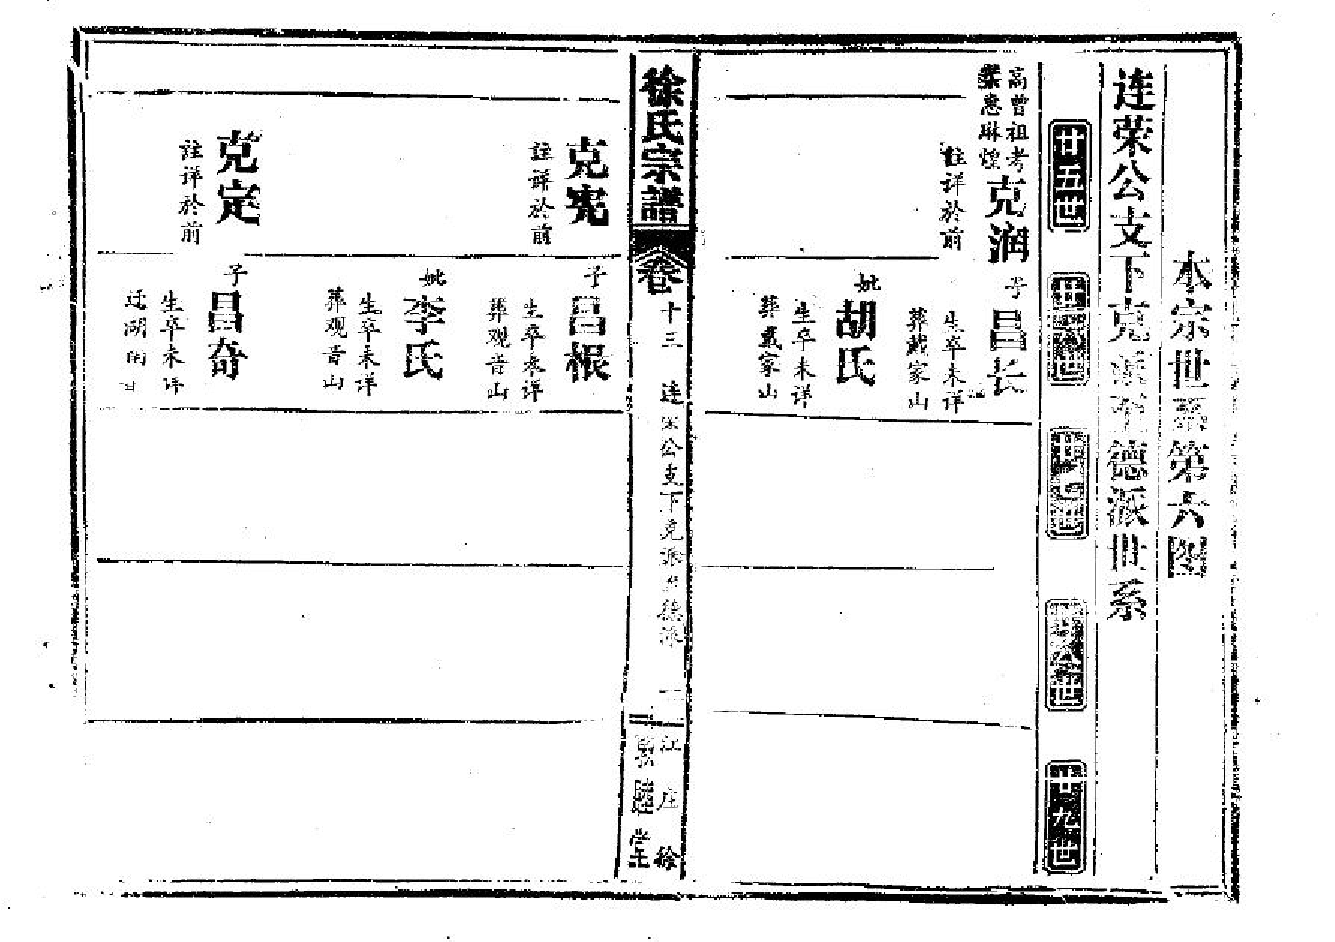 本宗世系第六图
连荣公支下克派至德派世系
廿五世
廿六世
廿七世
廿八世
廿九世
高曾祖考
惠琳煌
克润
註详於前
子
昌长
生卒未详
葬戴家山
妣
胡氏
生卒未详
葬戴家山
徐氏宗譜
卷
十三
连荣公支下克派至德派
一
江庄徐
敦睦堂
克宪
註详於前
子
昌根
生卒未详
葬观音山
妣
李氏
生卒未详
葬观音山
克定
註详於前
子
昌奇
生卒未详
迁湖南